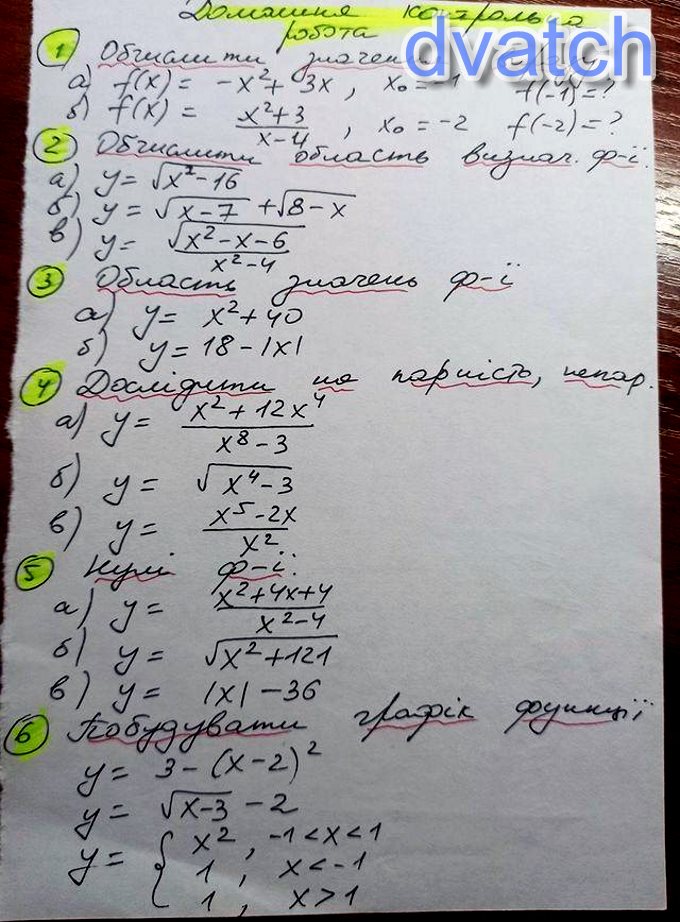 Домашня контрольна
робота
dvatch
1 Обчислити значення
а) f(x) = -x²+ 3x, x₀ = -1 f(-1)=?
б) f(x) = (x²+3)/(x-4), x₀ = -2 f(-2)=?
2 Обчислити область визнач. ф-ї.
а) y = √(x²-16)
б) y = √(x-7) + √(8-x)
в) y = √(x²-x-6)/(x²-4)
3 Область значень ф-ї
а) y = x²+40
б) y = 18-|x|
4 Дослідити на парність, непар.
а) y = (x²+12x⁴)/(x⁸-3)
б) y = √(x⁴-3)
в) y = (x⁵-2x)/x²
5 Нулі ф-ї.
а) y = (x²+4x+4)/(x²-4)
б) y = √(x²+121)
в) y = |x|-36
6 Побудувати графік функції
y = 3-(x-2)²
y = √(x-3) - 2
y = { x², -1<x<1
1, x<-1
1, x>1